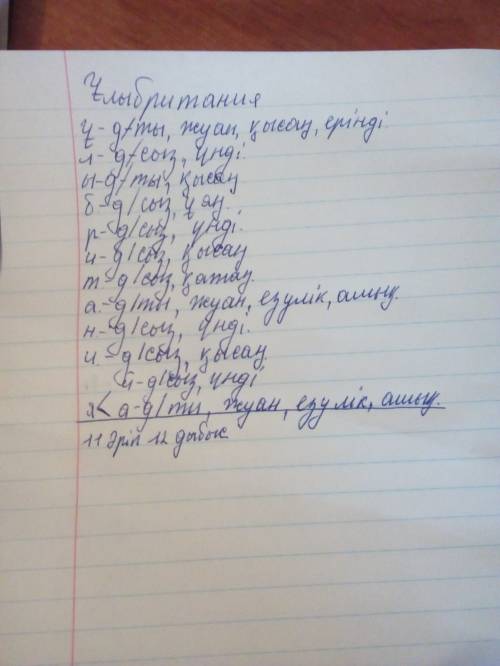 Ұлыбритания
ұ- д/ты, жуан, қысаң, ерінді
л- д/сыз, үнді.
ы-д/ты, қысаң
б-д/сыз, ұяң.
р-д/сыз, үнді.
и-д/сыз, қысаң
т-д/сыз, қатаң.
а-д/ты, жуан, езулік, ашық.
н-д/сыз, үнді.
и- д/сыз, қысаң.
й-д/сыз, үнді
я< а-д/ты, жуан, езулік, ашық.
11 әріп 12 дыбыс